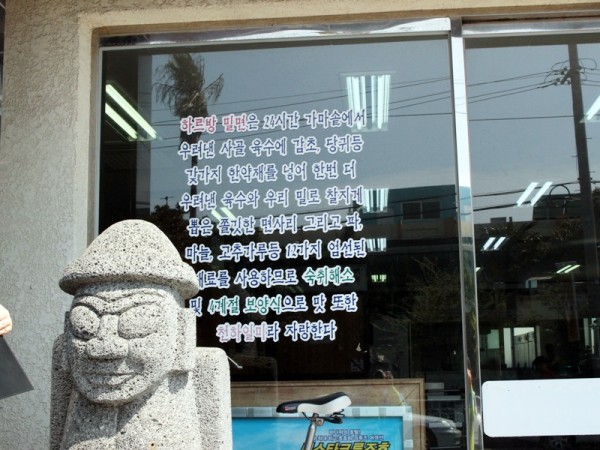 하르방 밀면은 24시간 가마솥에서
우려낸 사골 육수에 감초, 당귀등
갖가지 한약재를 넣어 한번 더
우려낸 육수와 우리 밀로 찰지게
뽑은 쫄깃한 면사리 그리고 파,
마늘, 고추가루등 12가지 엄선된
재료를 사용하므로 숙취해소
및 4계절 보양식으로 맛 또한
천하일미라 자랑한다